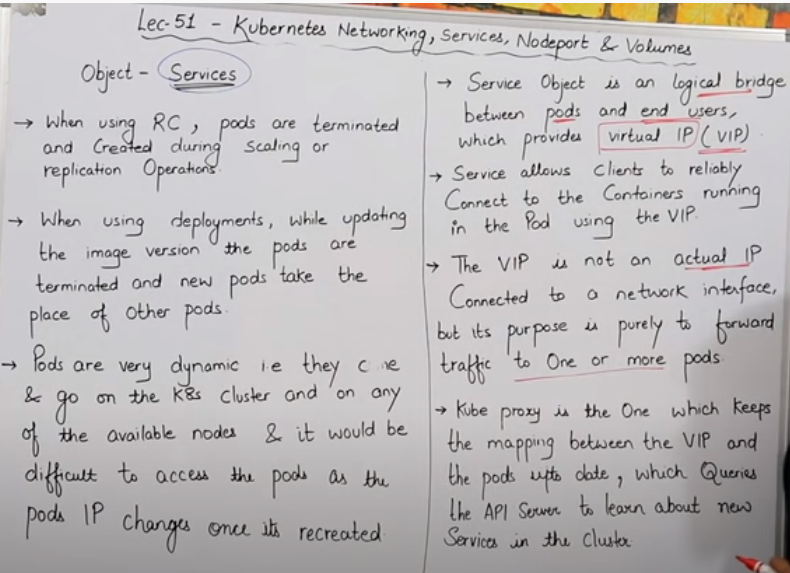 Lec-51 - Kubernetes Networking, Services, Nodeport & Volumes
Object - Services
→ When using RC, pods are terminated
and Created during Scaling or
replication Operations.
→ When using deployments, while updating
the image version the pods are
terminated and new pods take the
place of other pods.
→ Pods are very dynamic i.e they
& go on the K8s Cluster and on any
of the available nodes & it would be
difficult to access the pods as the
pods IP changes once its recreated
→ Service Object is an logical bridge
between pods and end users,
which provides virtual IP (VIP)
→ Service allows Clients to reliably
Connect to the Containers running
in the Pod using the VIP.
→ The VIP is not an actual IP
Connected to a network interface,
but its purpose is purely to forward
traffic to One or more pods.
→ Kube proxy is the One which Keeps
the mapping between the VIP and
the pods upto date, which Queries
the API Server to learn about new
Services in the Cluster